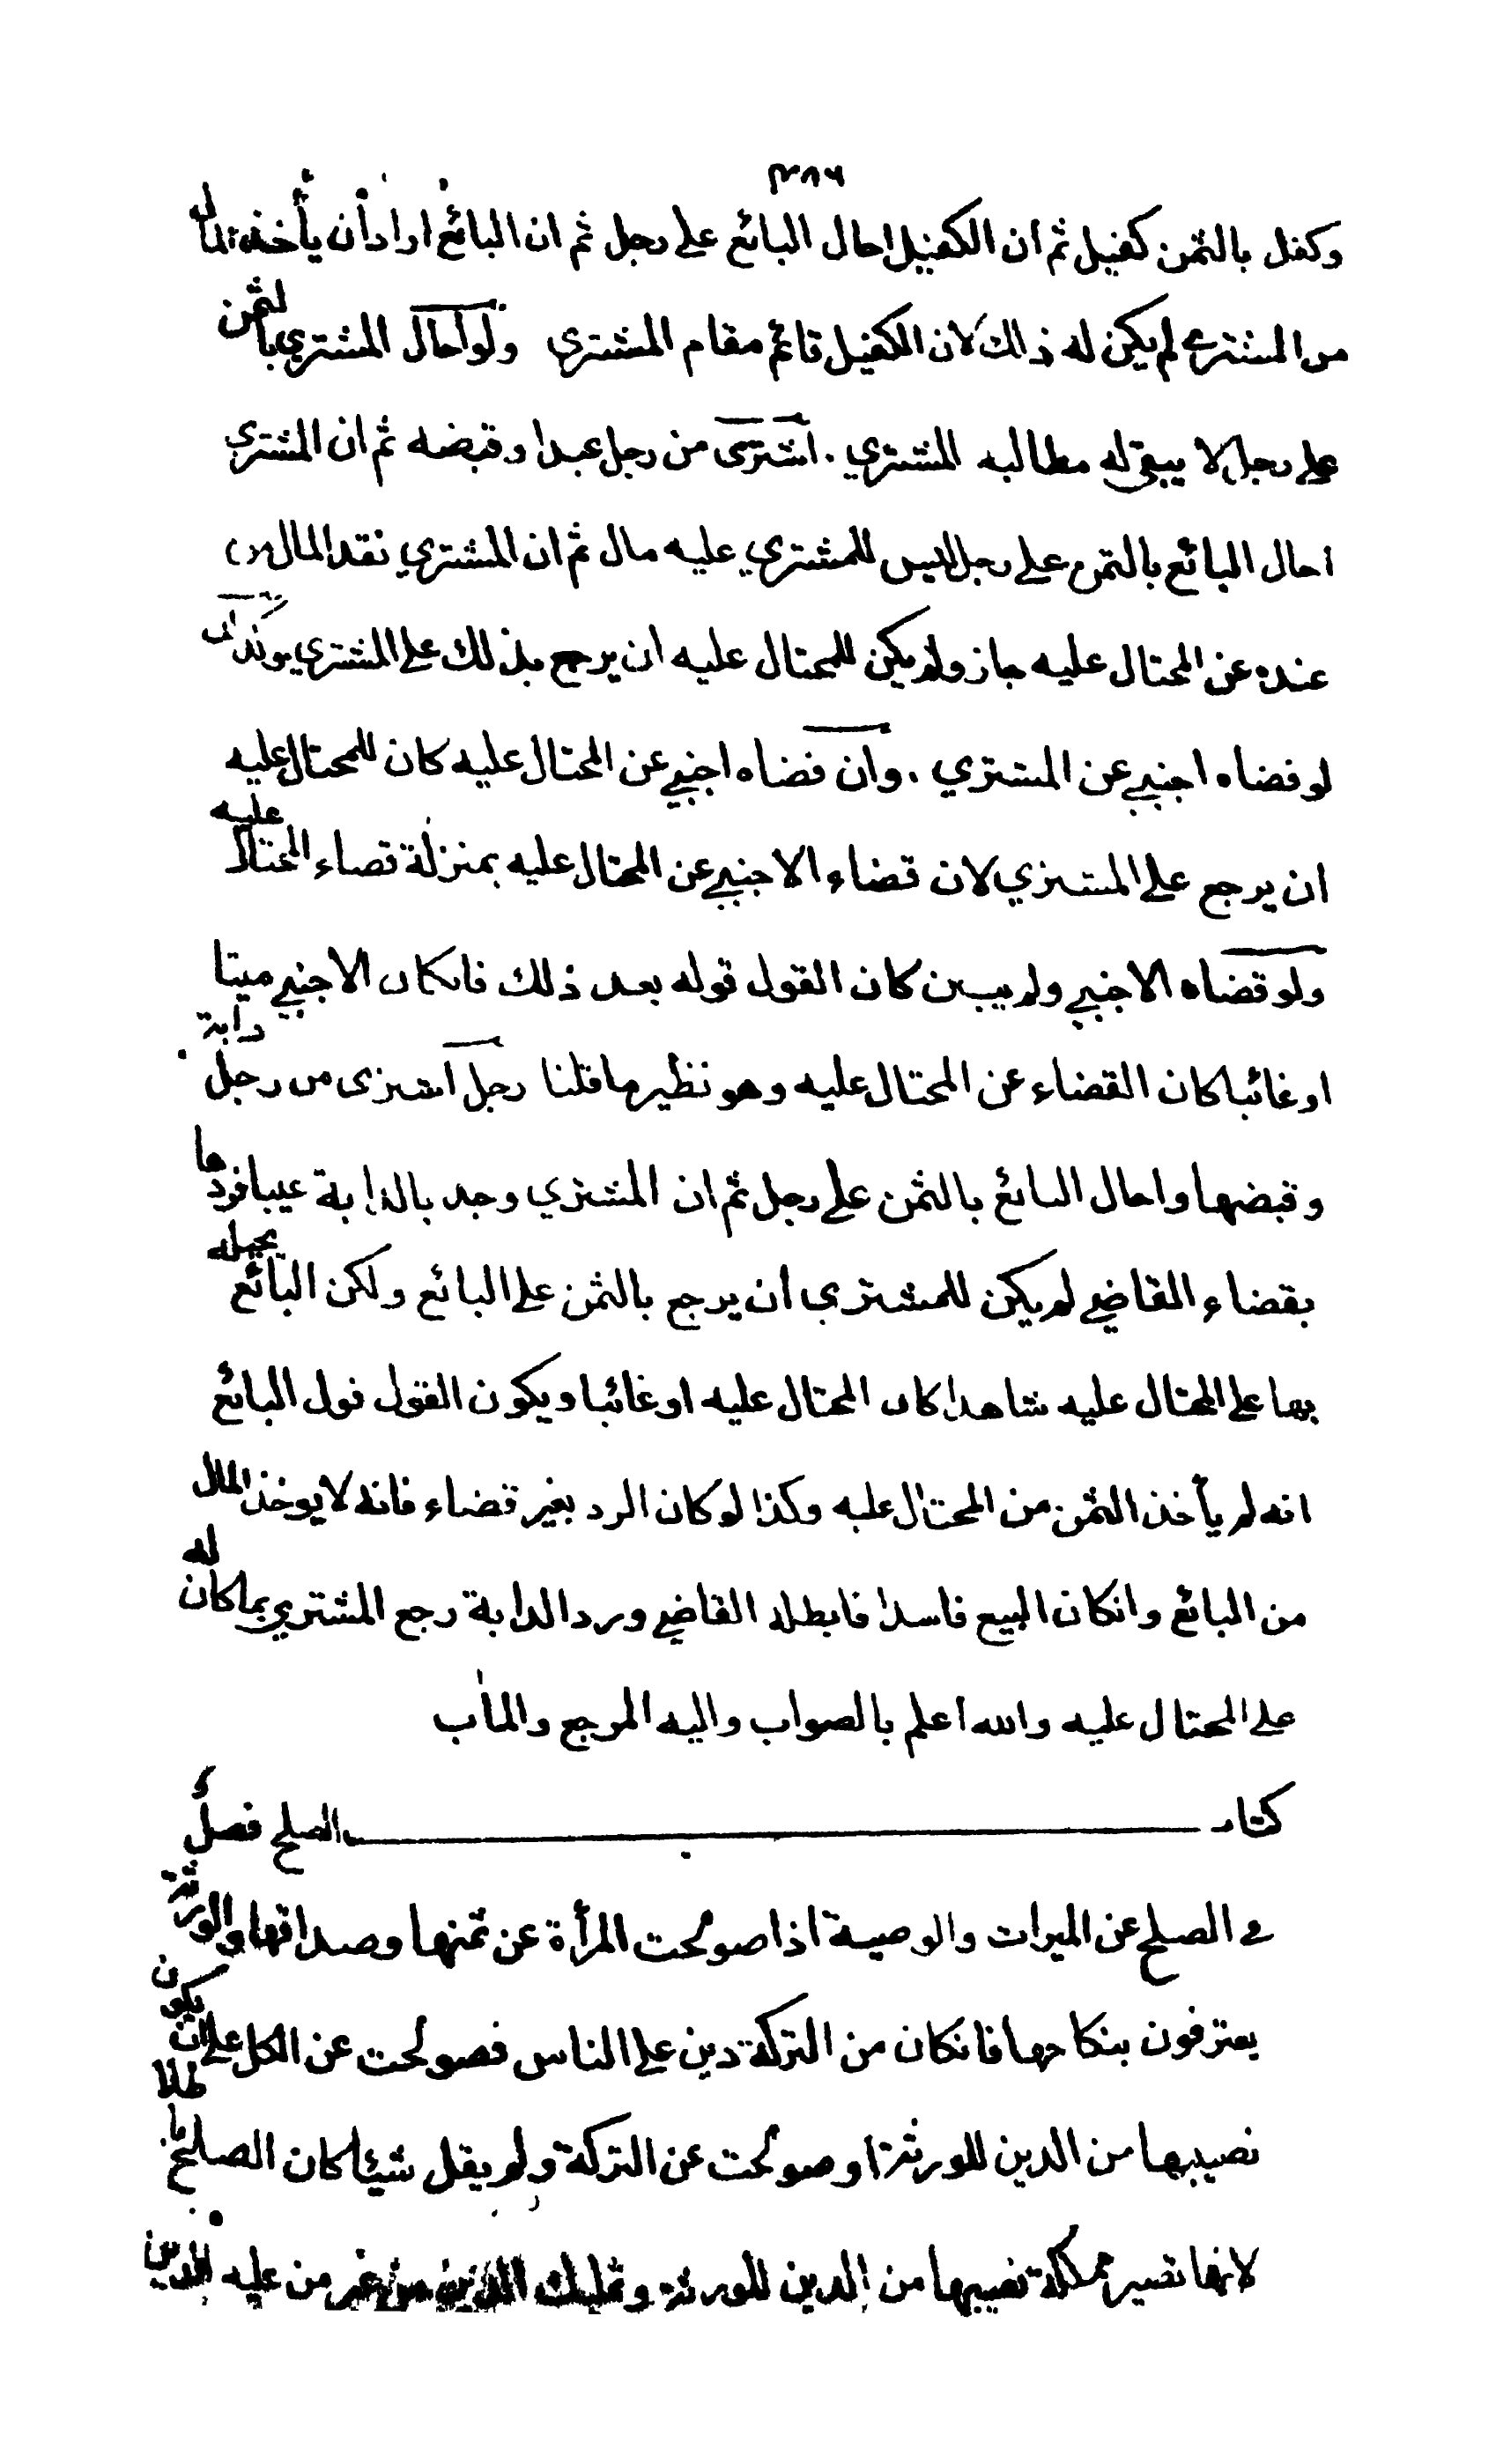 وكفل بالثمن كفيل ثم ان الكفيل احال البائع على رجل ثم ان البائع اراد أن يأخذ المال
من المشتري لم يكن له ذلك لان الكفيل قائم مقام المشتري ولو احال المشتري بالثمن
على رجل لا يبقى له مطالبه المشتري . اشترى من رجل عبدا وقبضه ثم ان المشتري
احال البائع بالثمن على رجل ليس للمشتري عليه مال ثم ان المشتري نقد المال
عنده عن المحتال عليه جاز ولم يكن للمحتال عليه ان يرجع بذلك على المشتري
لو قضاه اجنبي عن المشتري . وان قضاه اجنبي عن المحتال عليه كان للمحتال عليه
ان يرجع على المشتري لان قضاء الاجنبي عن المحتال عليه بمنزلة قضاء المحتال عليه
ولو قضاه الاجنبي ولم يبين كان القول قوله بعد ذلك فان كان الاجنبي ميتا
او غائبا كان القضاء عن المحتال عليه وهو نظير ما قلنا رجل اشترى من رجل دابة
وقبضها واحال البائع بالثمن على رجل ثم ان المشتري وجد بالدابة عيبا فردها
بقضاء القاضي لم يكن للمشتري ان يرجع بالثمن على البائع ولكن البائع يحيله
بها على المحتال عليه شاهدا كان المحتال عليه او غائبا ويكون القول قول البائع
انه لم يأخذ الثمن من المحتال عليه وكذا لو كان الرد بغير قضاء فانه لا يوخذ المال
من البائع وانكان البيع فاسدا فابطله القاضي ورد الدابة رجع المشتري بما كان له
على المحتال عليه والله اعلم بالصواب واليه المرجع والمأب
كتاب الصلح فصل
في الصلح عن الميراث والوصية اذا صولحت المرأة عن ثمنها وصداقها والورثة
يعترفون بنكاحها فانكان من التركة دين على الناس فصولحت عن الكل على ان يكون
نصيبها من الدين للورثة او صولحت عن التركة ولم يقل شيئا كان الصلح باطلا
لانها تصير مملكة نصيبها من الدين للورثة وتمليك الدين من غير من عليه الدين